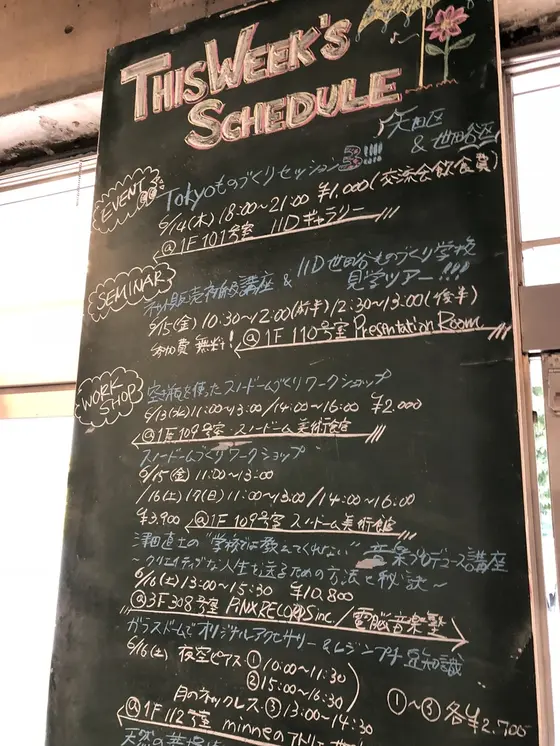 THIS WEEK'S
SCHEDULE
大田区
& 世田谷区
EVENT
Tokyoものづくりセッション!!!!
6/14(木) 18:00~21:00 ¥1,000(交流会飲食費)
@1F 101号室 IIDギャラリー
SEMINAR
ネット販売初級講座 & IID世田谷ものづくり学校
見学ツアー!!!
6/15(金) 10:30~12:00(前半)12:30~13:00(後半)
参加費 無料! @1F 110号室 Presentation Room
WORK
SHOP
空き瓶を使ったスノードームづくりワークショップ
6/13(水)11:00~13:00/14:00~16:00 ¥2,000
@1F109号室・スノードーム美術館
スノードームづくりワークショップ
6/15(金) 11:00~13:00
/16(土)17(日)11:00~13:00/14:00~16:00
¥3,900 @1F109号室 スノードーム美術館
津田直士の"学校では教えてくれない"音楽プロデュース講座
~クリエイティブな人生を送るための方法と秘訣~
6/16(土)13:00~15:30 ¥10,800
@3F308号室 PINX RECORDS inc./電脳音楽塾
ガラスドームでオリジナルアクセサリー&レジンプチ豆知識
6/16(土) 夜空ピアス①10:00~11:30
②15:00~16:30
月のネックレス・③13:00~14:30
①~③各¥2,700
@1F112号室 minneのアトリエ
天然の